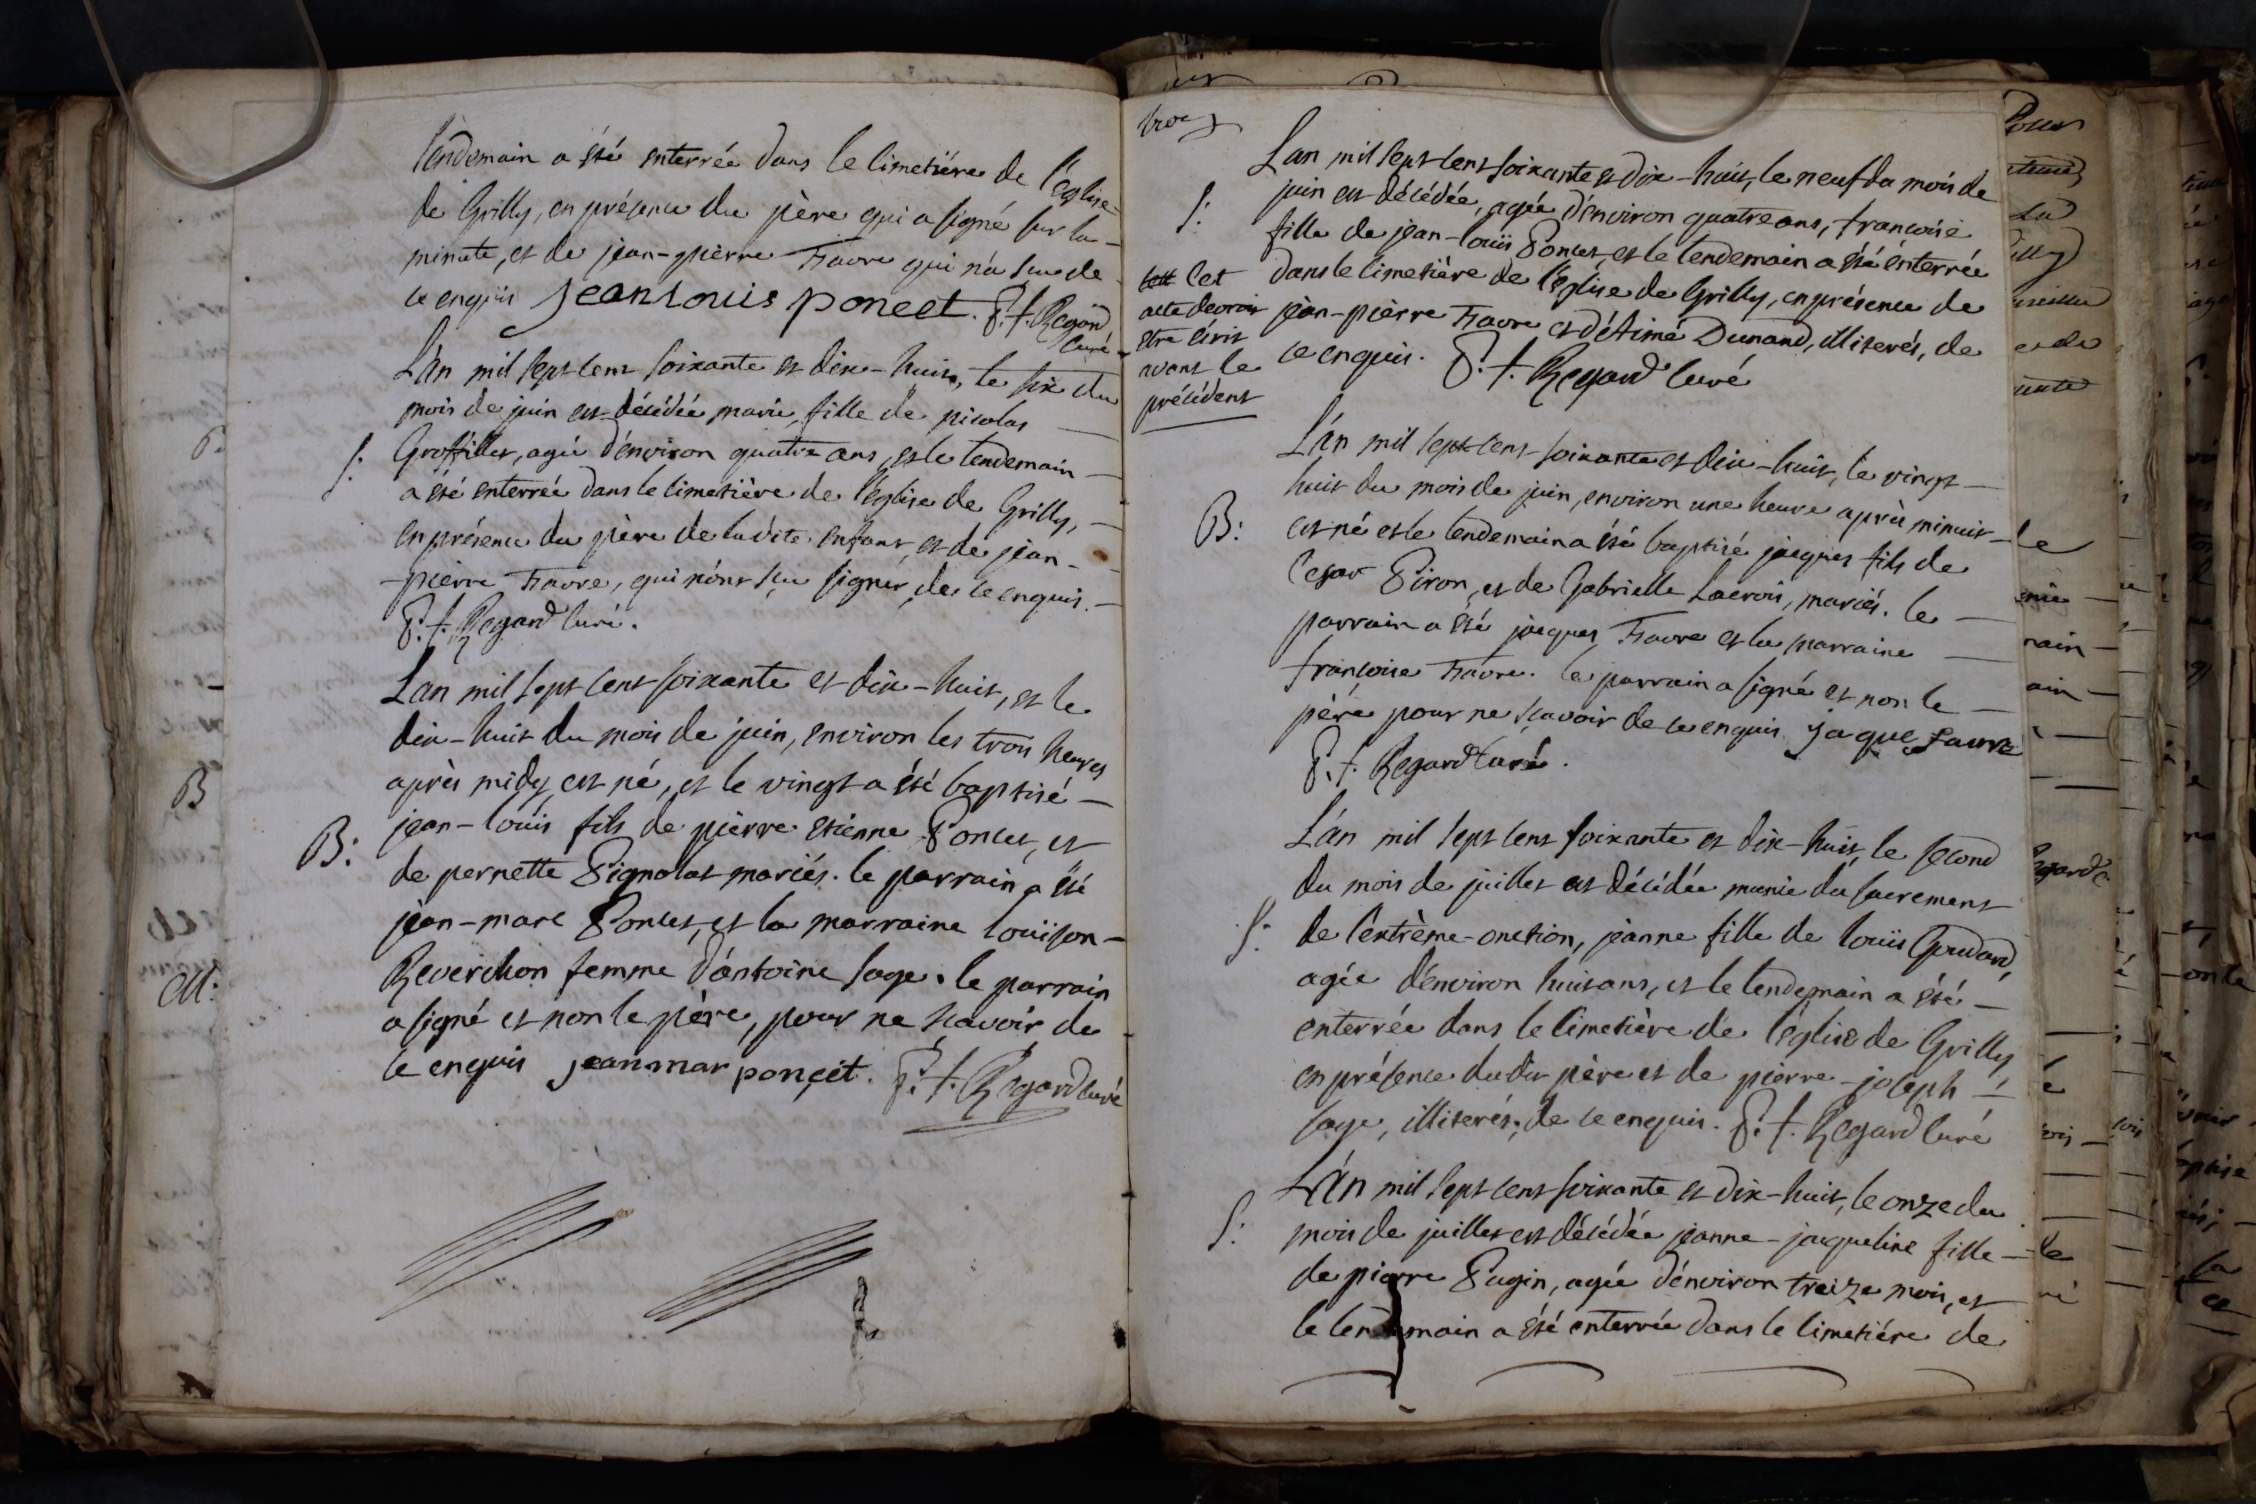 lendemain a été enterrée dans le cimetiére de l'église
de Grilly, en présence du père qui a signé sur la
minute, et de jean-pierre Favre qui n'a sçu de
ce enquis jean louis poncet. P. f. Regard
curé
L'an mil sept cent soixante et dix-huit, le six du
mois de juin est décédée marie, fille de nicolas
S: Grosfiller, agée d'environ quatre ans, et le lendemain
a été enterrée dans le cimetière de l'église de Grilly,
en présence du père de la dite enfant, et de jean-
-pierre Favre, qui n'ont sçu signer, de ce enquis.
P. f. Regard curé.
L'an mil sept cent soixante et dix-huit, et le
dix-huit du mois de juin, environ les trois heures
après midy est né, et le vingt a été baptisé
B: jean-louis fils de pierre etienne Poncet, et
de pernette Pignolat mariés. le parrain a été
jean-marc Poncet, et la marraine louison
Reverchon femme d'antoine sage. le parrain
a signé et non le père, pour ne scavoir de
ce enquis jean mar ponçet. P. f. Regard curé
L'an mil sept cent soixante et dix-huit, le neuf du mois de
S: juin est décédée, agée d'environ quatre ans, françoise
fille de jean-louis Poncet, et le lendemain a été enterrée
dans le cimetière de l'église de Grilly, en présence de
jean-pierre Favre et d'Aimé Dunand, illiterés, de
ce enquis. P. f. Regard curé
Cet
acte devroit
etre écrit
avant le
précédent
L'an mil sept cent soixante et dix-huit, le vingt
huit du mois de juin, environ une heure après minuit
B: est né et le lendemain a été baptisé jacques fils de
Cesar Piron, et de Gabrielle Lacrois, mariés. le
parrain a été jacques Favre et la marraine
françoise Favre. le parrain a signé et non le
père pour ne scavoir de ce enquis jaque favre
P. f. Regard curé.
L'an mil sept cent soixante et dix-huit, le second
du mois de juillet est décédée munie du sacrement
S: de l'extrème-onction, jeanne fille de louis Goudard,
agée d'environ huit ans, et le lendemain a été
enterrée dans le cimetière de l'église de Grilly
en présence du dit père et de pierre-joseph
sage, illiterés, de ce enquis. P. f. Regard curé
L'an mil sept cent soixante et dix-huit, le onze du
S: mois de juillet est décédée jeanne-jaqueline fille
de pierre Pugin, agée d'environ treize mois, et
le lendemain a été enterrée dans le cimetière de